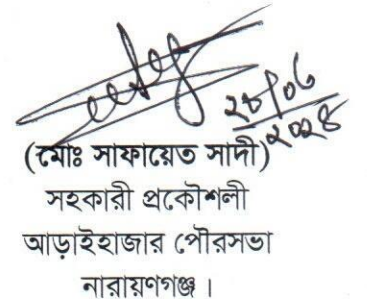 ২৮/০৬
২০২৪
(মোঃ সাফায়েত সাদী)
সহকারী প্রকৌশলী
আড়াইহাজার পৌরসভা
নারায়ণগঞ্জ।